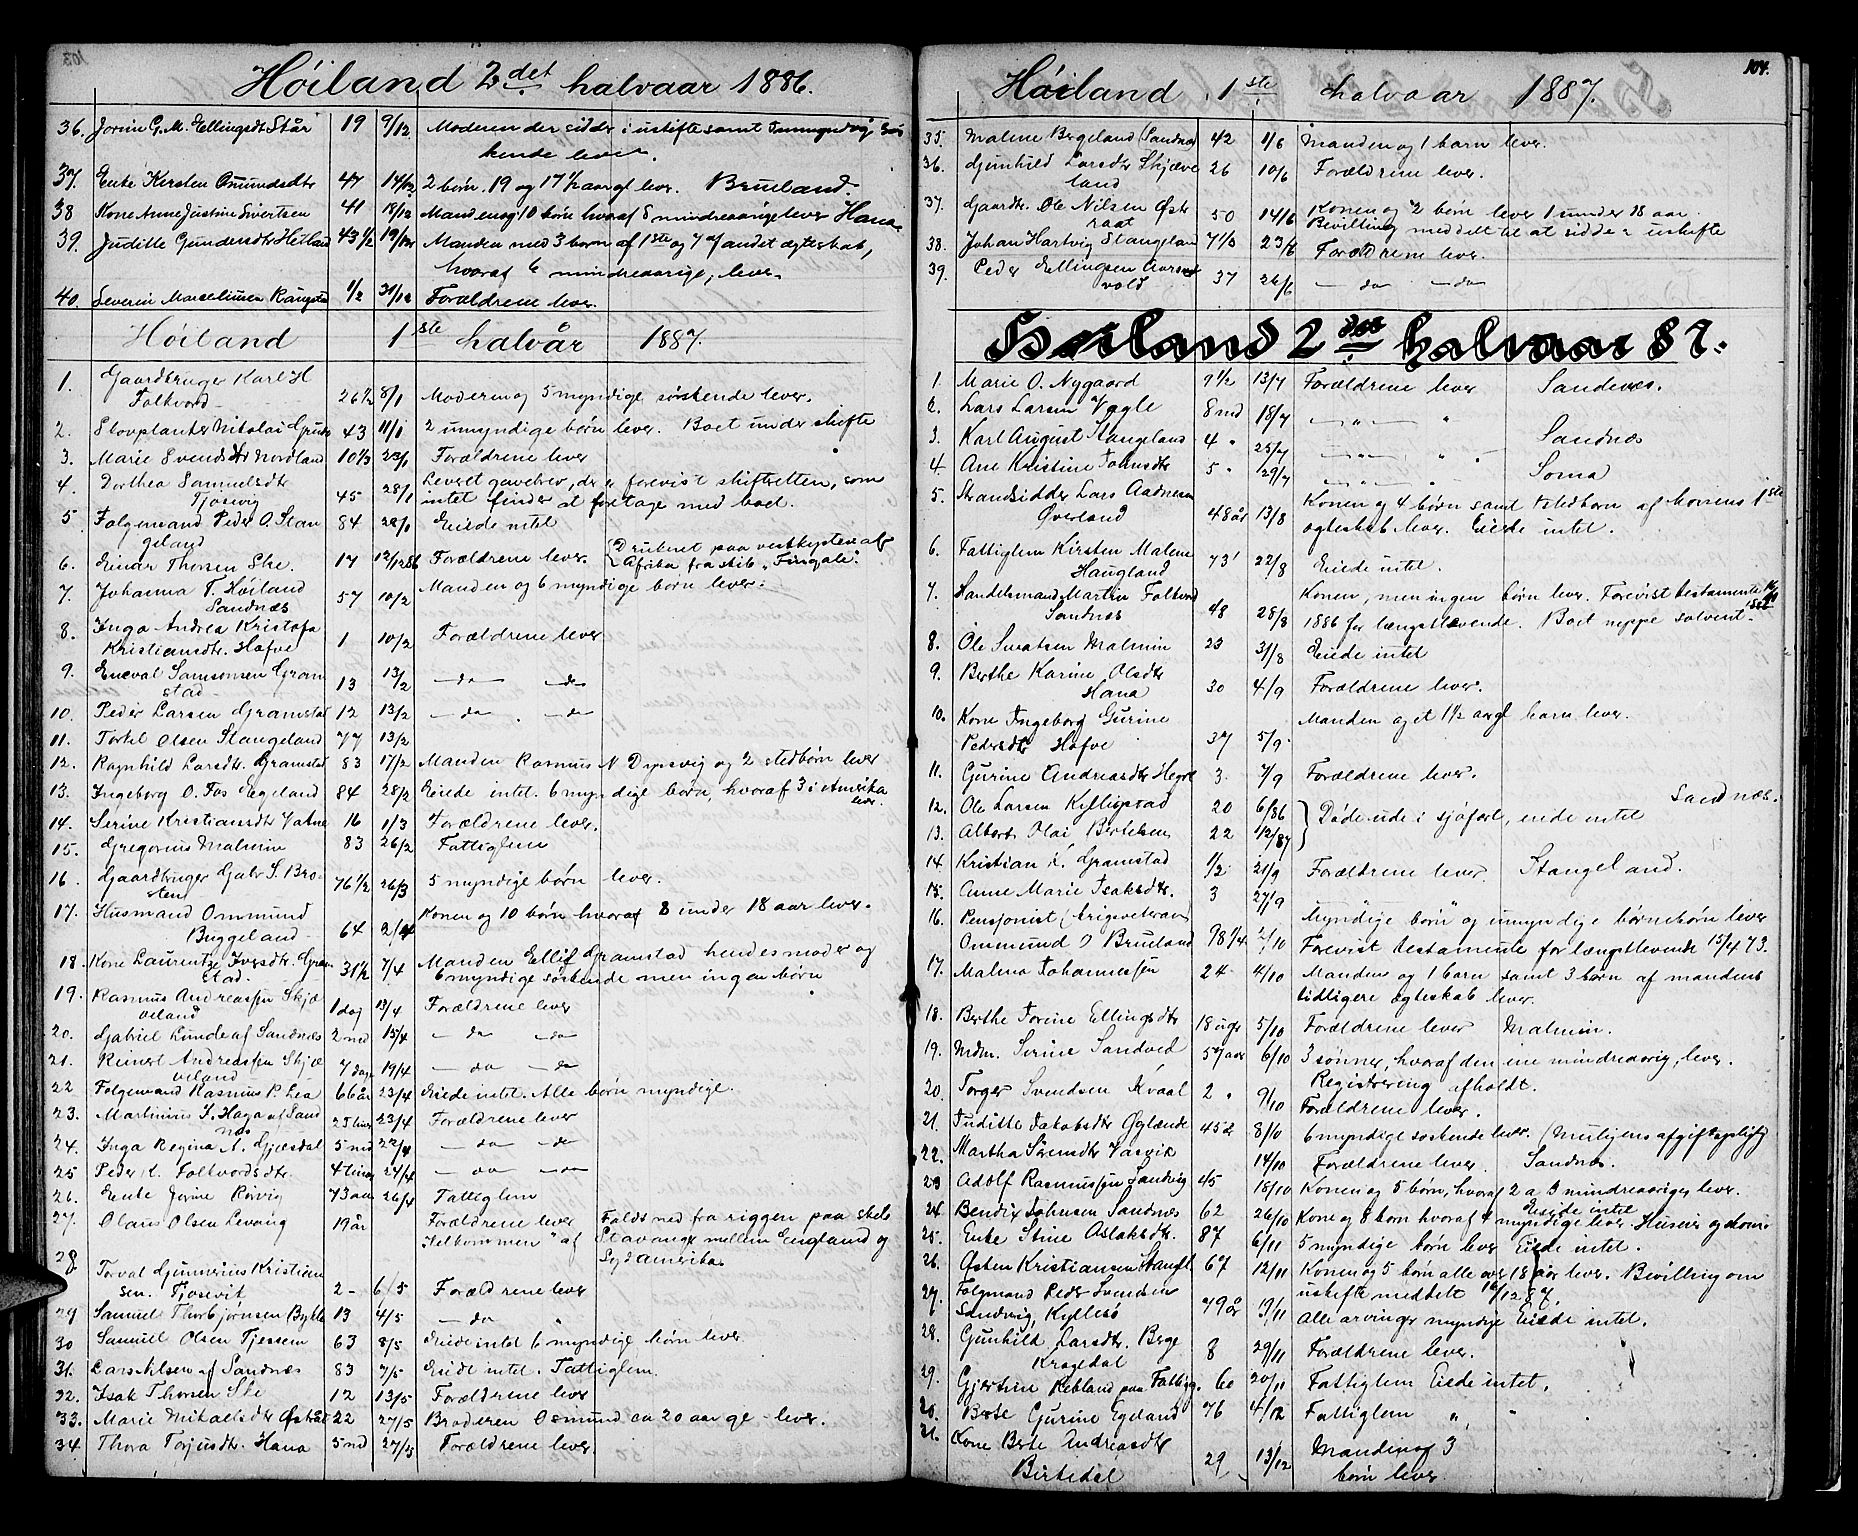 103
Höiland 2det halvaar 1886.
36. Jorine G. M. Ellingsdt Står 19 9/12 Moderen der sidder i uskifte samt 5 umyndige søs
kende lever.
37. Enke Kirsten Omundsdtr 47 14/12 2 børn 19 og 17 1/2 aar gl lever. Brueland.
38 Kone Anne Justine Sivertsen 41 18/12 Manden og 10 børn hvoraf 8 mindreaarige lever Hana
39. Juditte Gundersdtr Hetland 43 1/2 19/12 Manden med 3 børn af 1ste og 7 af andet ægteskab,
hvoraf 6 mindreaarige, lever.
40. Severin Marcelinsen 1/2 31/12 Forældrene lever.
Höiland 1ste halvår 1887.
1. Gaardbruger Karl H
Folkvord 26 1/2 8/1 Moderen og 5 myndige søskende lever.
2. Nikolai 43 11/1 2 umyndige børn lever. Boet under skifte
3. Marie Svendsdtr Nordland 10 1/3 23/1 Forældrene lever
4. Dorthea Samuelsdtr
Tjosevig 45 28/1 Leveret gavebrev, der er forevist skifteretten, som
intet finder at foretage med boet.
5 Folgemand Peder O. Stan
geland 84 28/1 Eiede intet
6. Einar Thorsen Ske. 17 12/12 86 Forældrene lever. Druknet paa vestkysten af
Afrika fra skib "Fingale".
7. Johanna T. Höiland
Sandnæs 57 10/2 Manden og 6 myndige børn lever.
8. Inga Andrea Kristofa
Kristiansdtr. Hofve 1 10/2 Forældrene lever
9. Eneval Samsonsen Gram
stad 13 13/2 — do — do
10. Peder Larsen Gramstad 12 13/2 — do — do
11. Torkel Olsen Stangeland 77 13/2
12. Ragnhild Larsdtr. Gramstad 83 17/2 Manden Rasmus N Dypsvig og 2 stedbørn lever
13. Ingeborg O. Fos Egeland 84 28/2 Eiede intet. 6 myndige børn, hvoraf 3 i Amerika
lever.
14. Serine Kristiansdtr Vatne 16 1/3 Forældrene lever.
15. Gregorius Malmin 83 26/2 Fattiglem
16. Gaardbruger Gabr. S. Bro-
sten 76 1/2 26/3 5 myndige børn lever.
17. Husmand Ommund
Buggeland 64 2/4 Konen og 10 børn hvoraf 8 under 18 aar lever.
18. Kone Laurentze Iversdtr. Gram
stad. 31 1/2 7/4 Manden Ellif Gramstad hendes moder og
6 myndige søskende men ingen børn
19. Rasmus Andreassen Skjæ
veland 1 dag 13/4 Forældrene lever
20. Gabriel Lunde af Sandnæs 2 md 15/4 — do — do
21. Reinert Andreassen Skjæ
veland 7 dage 19/4 — do — do
22 Folgemand Rasmus P. Lea 66 år 23/4 Eiede intet. Alle børn myndige.
23. Martinius S. Haga af Sand
næs 25 timer 23/4 Forældrene lever
24. Inga Regina A. Gjesdal 5 md 22/4 — do — do
25 Peder K. Folkvordsdtr. 4 timer 24/4 — do — do
26. Enke Jorine Rørvig 73 aar 26/4 Fattiglem
27. Olaus Olsen Levang 19 år Forældrene lever Faldt ned fra riggen paa skib
"Velkommen" af Stavanger mellem England og
Sydamerika
28 Torval Gunnerius Kristian
sen. Tjosevik 2- 6/5 Forældrene lever
29 Samuel Thorbjørnsen Bykle 13 4/5 — do "
30 Samuel Olsen Tjessem 63 8/5 Eiede intet 6 myndige børn lever
31. Lars Nilsen af Sandnæs 83 7/5 Eiede intet. Fattiglem.
32. Isak Thorsen Ske 12 13/5 Forældrene lever
33. Marie Mikaelsdtr Østråt 22 27/5 Broderen Osmund ca 20 aar gl - lever.
34 Thora Torjusdtr. Hana 5 md 27/5 Forældrene lever
104.
Höiland 1ste halvaar 1887.
35. Malene Bergeland (Sandnæs 42 1/6 Manden og 1 barn lever.
36. Gunhild Larsdtr Skjæve
land 26 10/6 Forældrene lever.
37. Gaardbr. Ole Nilsen Øst
raat 50 14/6 Konen og 2 børn lever 1 under 18 aar.
Bevilling meddelt til at sidde i uskifte
38. Johan Hartvig Stangeland 7 1/3 23/6 Forældrene lever.
39. Peder Ellingsen Aars
vold 37 26/6 — do — do
Höiland 2det halvaar 87.
1. Marie O. Nygaard 7 1/2 13/7 Forældrene lever Sandnæs.
2. Lars Larsen Vagle 8 md 18/7 — " — "
3. Karl August Stangeland 4 " 25/7 — " — " Sandnæs
4. Ane Kristine Tønsdtr 5 " 29/7 — " " Soma
5. Strandsidder Lars Aadnesen
Øverland 48 år 13/8 Konen og 4 børn samt 1 stedbarn af konens 1ste
ægteskab lever. Eiede intet.
6. Fattiglem Kirsten Malene
Haugland 73 22/8 Eiede intet.
7. Handelsmand Martin Folkvord
Sandnæs 48 28/8 Konen, men ingen børn lever. Forevist testamente
1886 for længstlevende. Boet neppe solvent.
8. Ole Sivertsen Malmin 23 31/8 Eiede intet
9. Berthe Karine Olsdtr
Hana 30 4/9 Forældrene lever.
10. Kone Ingeborg Gurine
Pedersdtr Hofve 37 5/9 Manden og et 1 1/2 aar gl barn lever.
11. Gurine Andreasdtr Hegre 3. 7/9 Forældrene lever.
12. Ole Larsen Kylligstad 20 6/86 Døde ude i sjøfart, eiede intet Sandnæs.
13. Albert Olai Bertelsen 22 1/2/87
14. Kristian K. Gramstad 1/2 21/9 Forældrene lever Stangeland.
15. Anne Marie Isaksdtr. 3 27/9 "
16. Pensjonist (krigsveteran)
Ommund O Brueland 98 1/4 2/10 Myndige børn og umyndige børnebørn lever
Forevist testamente for længstlevende 15/4 73.
17. Malena Johannessen 24 4/10 Manden og 1 barn samt 3 børn af mandens
tidligere ægteskab lever.
18. Berthe Torine Ellingsdtr 18 uger 5/10 Forældrene lever Malmin.
19. Mdm. Serine Sandved 57 aar 6/10 3 sønner, hvoraf den ene mindreaarig, lever.
Registrering afholdt.
20. Torger Svendsen Kvaal 2 " 9/10 Forældrene lever.
21. Juditte Jakobsdtr Øglænde 45 år 8/10 6 myndige søskende lever. (Muligens afgiftspligtig)
22. Martha Sørensdtr Vasvik 14/10 Forældrene lever. Sandnæs.
23 Adolf Rasmussen Sandvig 45 18/10 Konen og 5 børn, hvoraf 2 a 3 mindreaariges lever.
24. Bendix Johnsen Sandnæs 62 26/10 Kone og 8 børn hvoraf 4 myndige lever. Eiede intet
25. Enke Stine Aslaksdtr. 87 6/11 5 myndige børn lever Eiede intet.
26. Østen Kristiansen Stangl. 67 12/11 Konen og 5 børn alle over 18 aar lever. Bevilling om
uskifte meddelt 16/12 87.
27. Folgmand Peder Svendsen
Sandvig, Kyllesø 79 år 19/11 Alle arvinger myndige Eiede intet.
28. Gunhild Larsdtr. Berge
Kragedal 8 29/11 Forældrene lever.
29. Gjertine Retland paa Fattigg. 60 20/11 Fattiglem Eiede intet.
20. Berte Gurine Egeland 76 4/12 Fattiglem " "
21. Kone Berte Andreasdtr
Birkedal 29 13/12 Manden og 3
børn lever